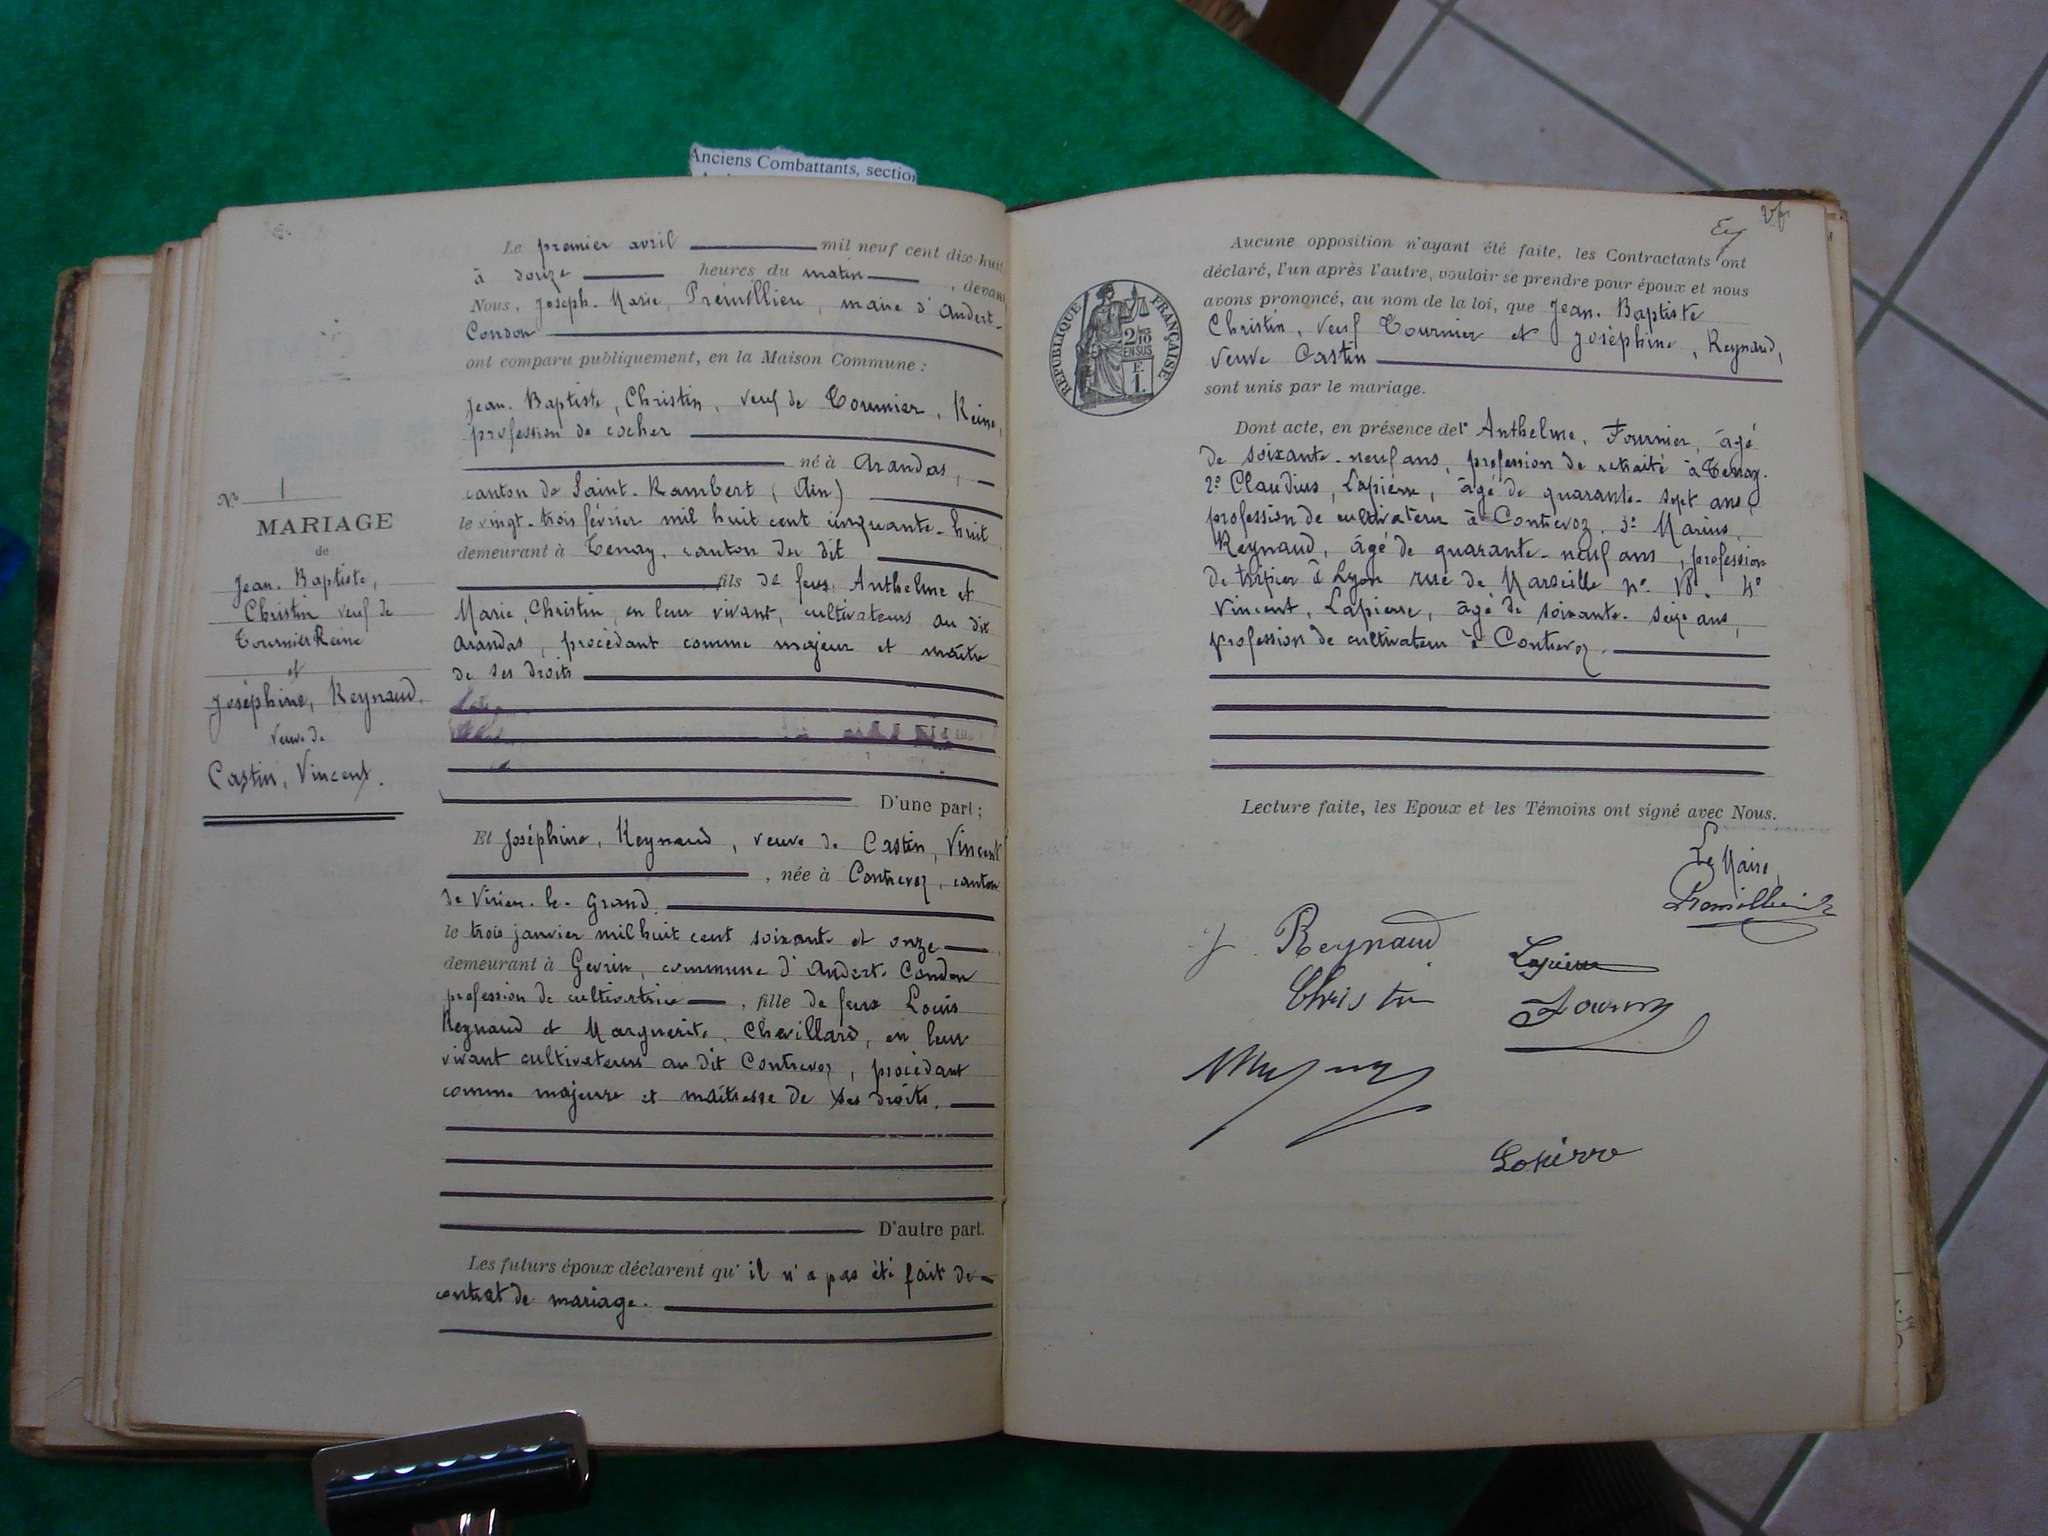 Anciens Combattants, section
N° 1
MARIAGE
de
Jean-Baptiste,
Christin veuf de
Tournier Reine
et
Joséphine, Reynaud,
veuve de
Castin, Vincent.
Le premier avril mil neuf cent dix-huit
à douze heures du matin, devant
Nous, Joseph-Marie, Prémillieu, maire d'Andert-
Condon
ont comparu publiquement, en la Maison Commune :
Jean-Baptiste, Christin, veuf de Tournier, Reine,
profession de cocher
né à Arandas,
canton de Saint-Rambert (Ain)
le vingt-trois février mil huit cent cinquante-huit
demeurant à Tenay, canton du dit
fils de feus Anthelme et
Marie, Christin, en leur vivant, cultivateurs au dit
Arandas, procédant comme majeur et maître
de ses droits
D'une part ;
Et Joséphine, Reynaud, veuve de Castin, Vincent
, née à Contrevoz, canton
de Virieu-le-Grand,
le trois janvier mil huit cent soixante et onze
demeurant à Gevrin, commune d'Andert-Condon
profession de cultivatrice, fille de feus Louis
Reynaud et Marguerite, Chevillard, en leur
vivant cultivateurs au dit Contrevoz, procédant
comme majeure et maîtresse de ses droits.
D'autre part.
Les futurs époux déclarent qu'il n'a pas été fait de
contrat de mariage.
RÉPUBLIQUE FRANÇAISE
2/10
EN SUS
F.
1.
Aucune opposition n'ayant été faite, les Contractants ont
déclaré, l'un après l'autre, vouloir se prendre pour époux et nous
avons prononcé, au nom de la loi, que Jean-Baptiste
Christin, veuf Tournier et Joséphine, Reynaud,
veuve Castin
sont unis par le mariage.
Dont acte, en présence de 1° Anthelme, Fournier, âgé
de soixante-neuf ans, profession de retraité à Tenay.
2° Claudius, Lapierre, âgé de quarante-sept ans,
profession de cultivateur à Contrevoz. 3° Marius,
Reynaud, âgé de quarante-neuf ans, profession
de tripier à Lyon rue de Marseille n° 18. 4°
Vincent, Lapierre, âgé de soixante-seize ans,
profession de cultivateur à Contrevoz.
Lecture faite, les Epoux et les Témoins ont signé avec Nous.
Le Maire,
Premillieu
J Reynaud
Lapierre
Christin
Fournier
Lapierre